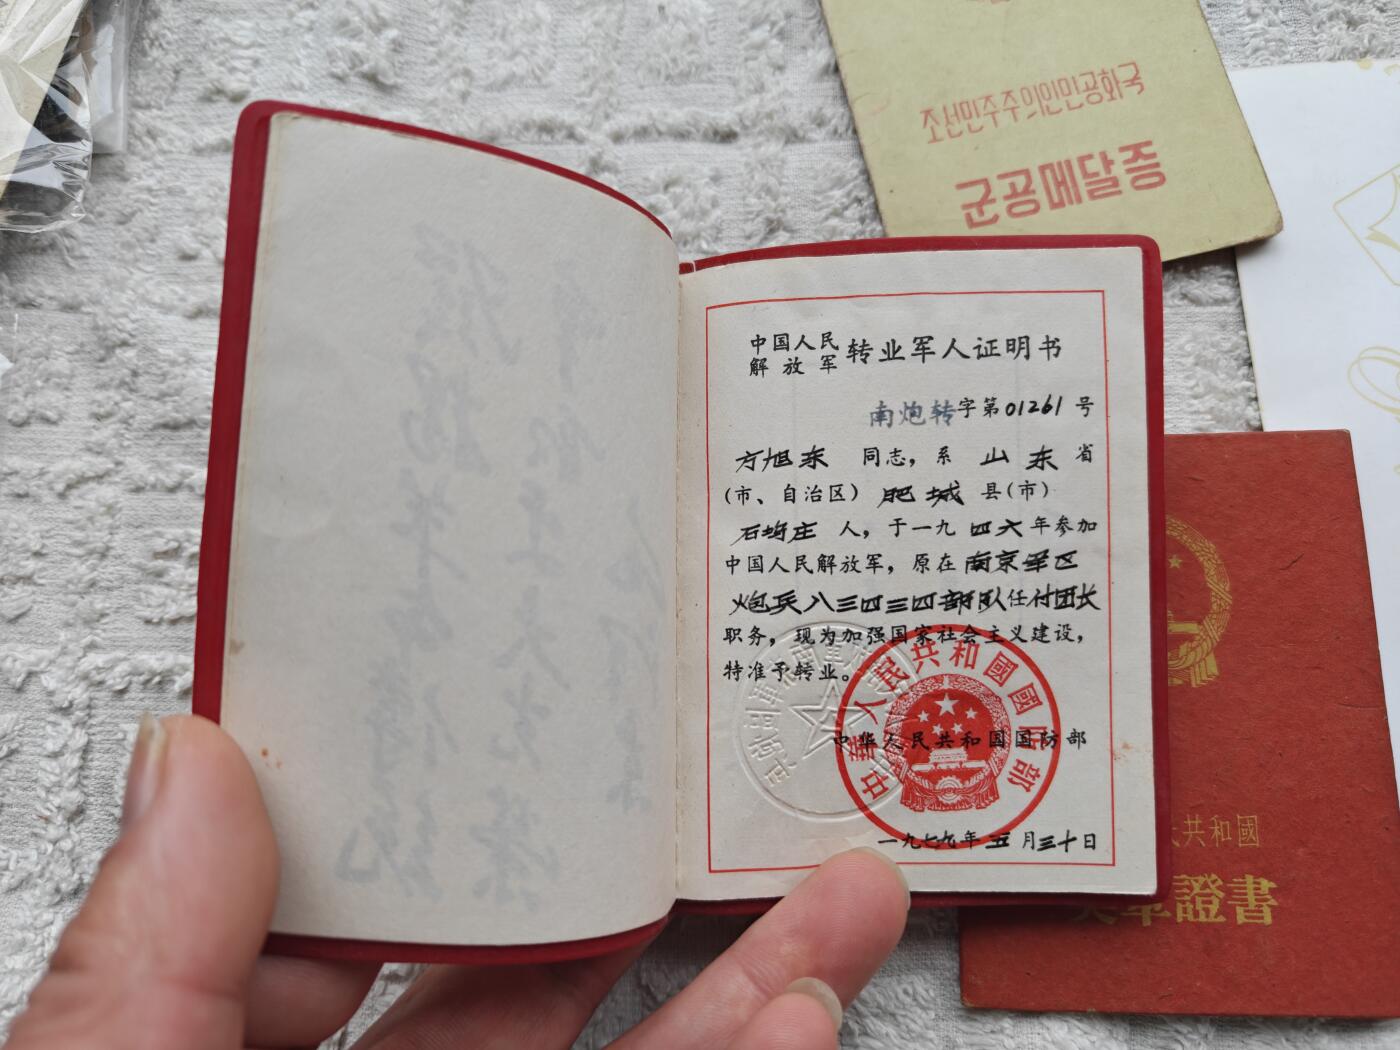 조선민주주의인민공화국
군공메달증
中国人民
解放军
转业军人证明书
南炮转字第01261号
方旭东 同志，系 山东 省
(市、自治区) 肥城 县(市)
石坞庄 人，于一九四六年参加
中国人民解放军，原在南京军区
炮兵八三四三四部队任付团长
职务，现为加强国家社会主义建设，
特准予转业。
中华人民共和国国防部
中华人民共和國國防部
一九七九年五月三十日
民共和國
章證書